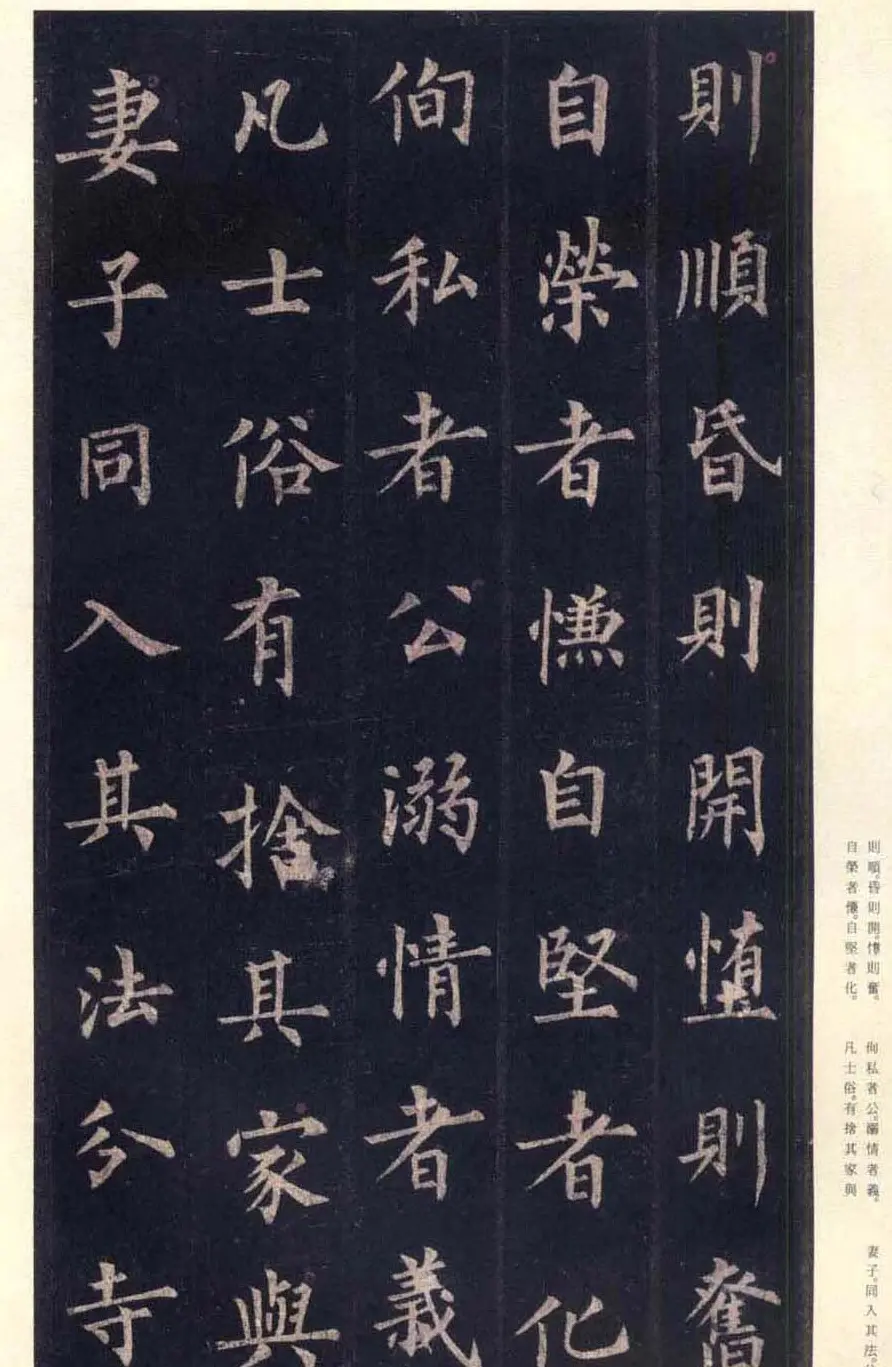 則順昏則開墮則奮
自榮者慊自堅者化
侚私者公溺情者義
凡士俗有捨其家與
妻子同入其法分寺
則順。昏則開。惰則奮。
自榮者慊。自堅者化。
侚私者公。溺情者義。
凡士俗。有捨其家與
妻子。同入其法。